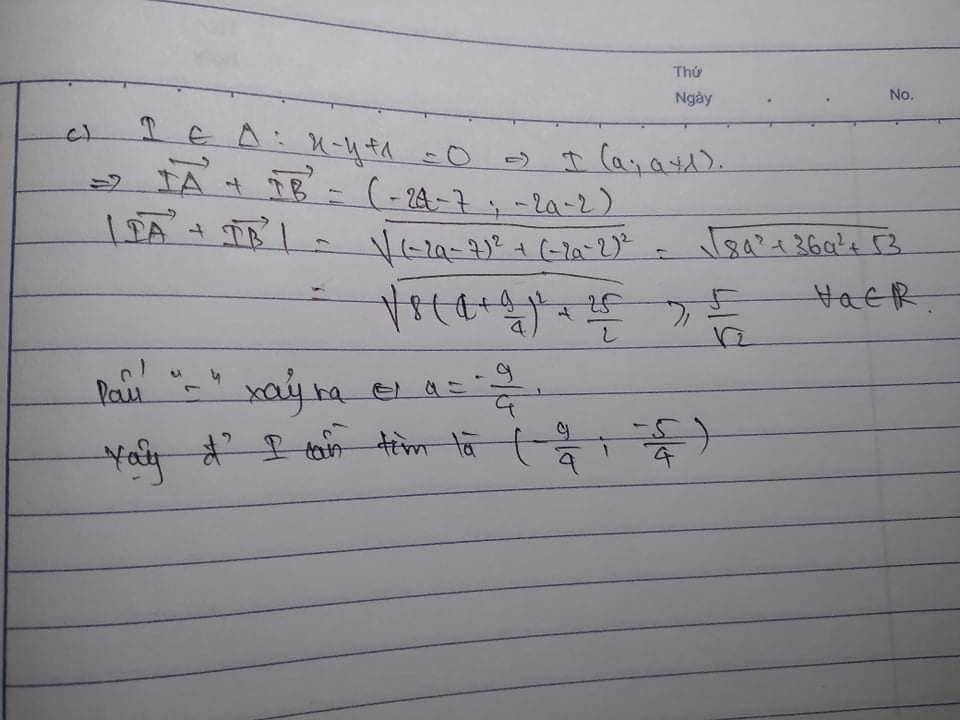 Thứ
Ngày . . No.
c) I ∈ Δ: x-y+1 = 0 ⇒ I (a; a+1).
⇒ \overrightarrow{IA} + \overrightarrow{IB} = (-2a-7 ; -2a-2)
|\overrightarrow{IA} + \overrightarrow{IB}| = √((-2a-7)² + (-2a-2)²) = √(8a² + 36a² + 53)
= √(8(a + 9/4)² + 25/2) ≥ 5/√2 ∀a ∈ ℝ.
Dấu "=" xảy ra ⇔ a = -9/4.
Vậy đ' I cần tìm là (-9/4 ; -5/4)